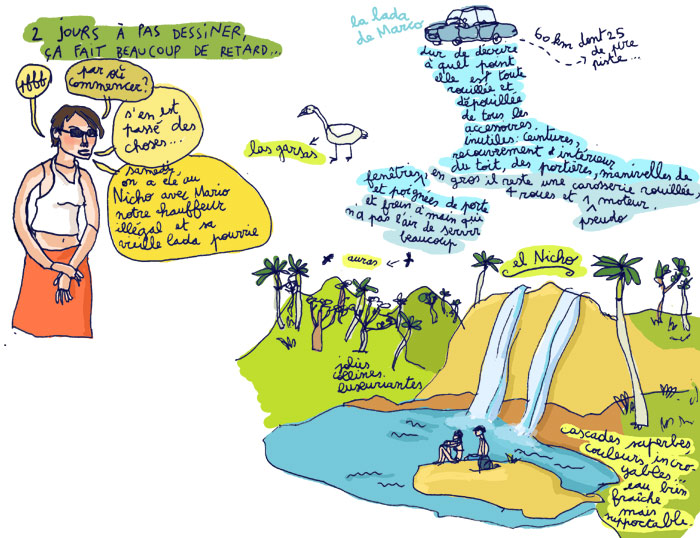 2 JOURS À PAS DESSINER,
ÇA FAIT BEAUCOUP DE RETARD...
pfff
par où
commencer?
s'en est
passé des
choses...
samedi,
on a été au
Nicho avec Mario
notre chauffeur
illégal et sa
vieille lada pourrie
la lada
de Marco
60 km dont 25
de pire
piste...
dur de décrire
à quel point
elle est toute
rouillée et
dépouillée
de tous les
accessoires
inutiles: ceintures,
recouvrement d'intérieur
du toit, des portières, manivelles de
fenêtres, en gros il reste une carosserie rouillée,
et poignées de porte
4 roues et 1 moteur.
et frein à main qui
pseudo
n'a pas l'air de servir
beaucoup
las garsas
auras
el Nicho
jolies
collines
luxuriantes
cascades superbes
couleurs incro-
yables...
eau bien
fraîche
mais
supportable.